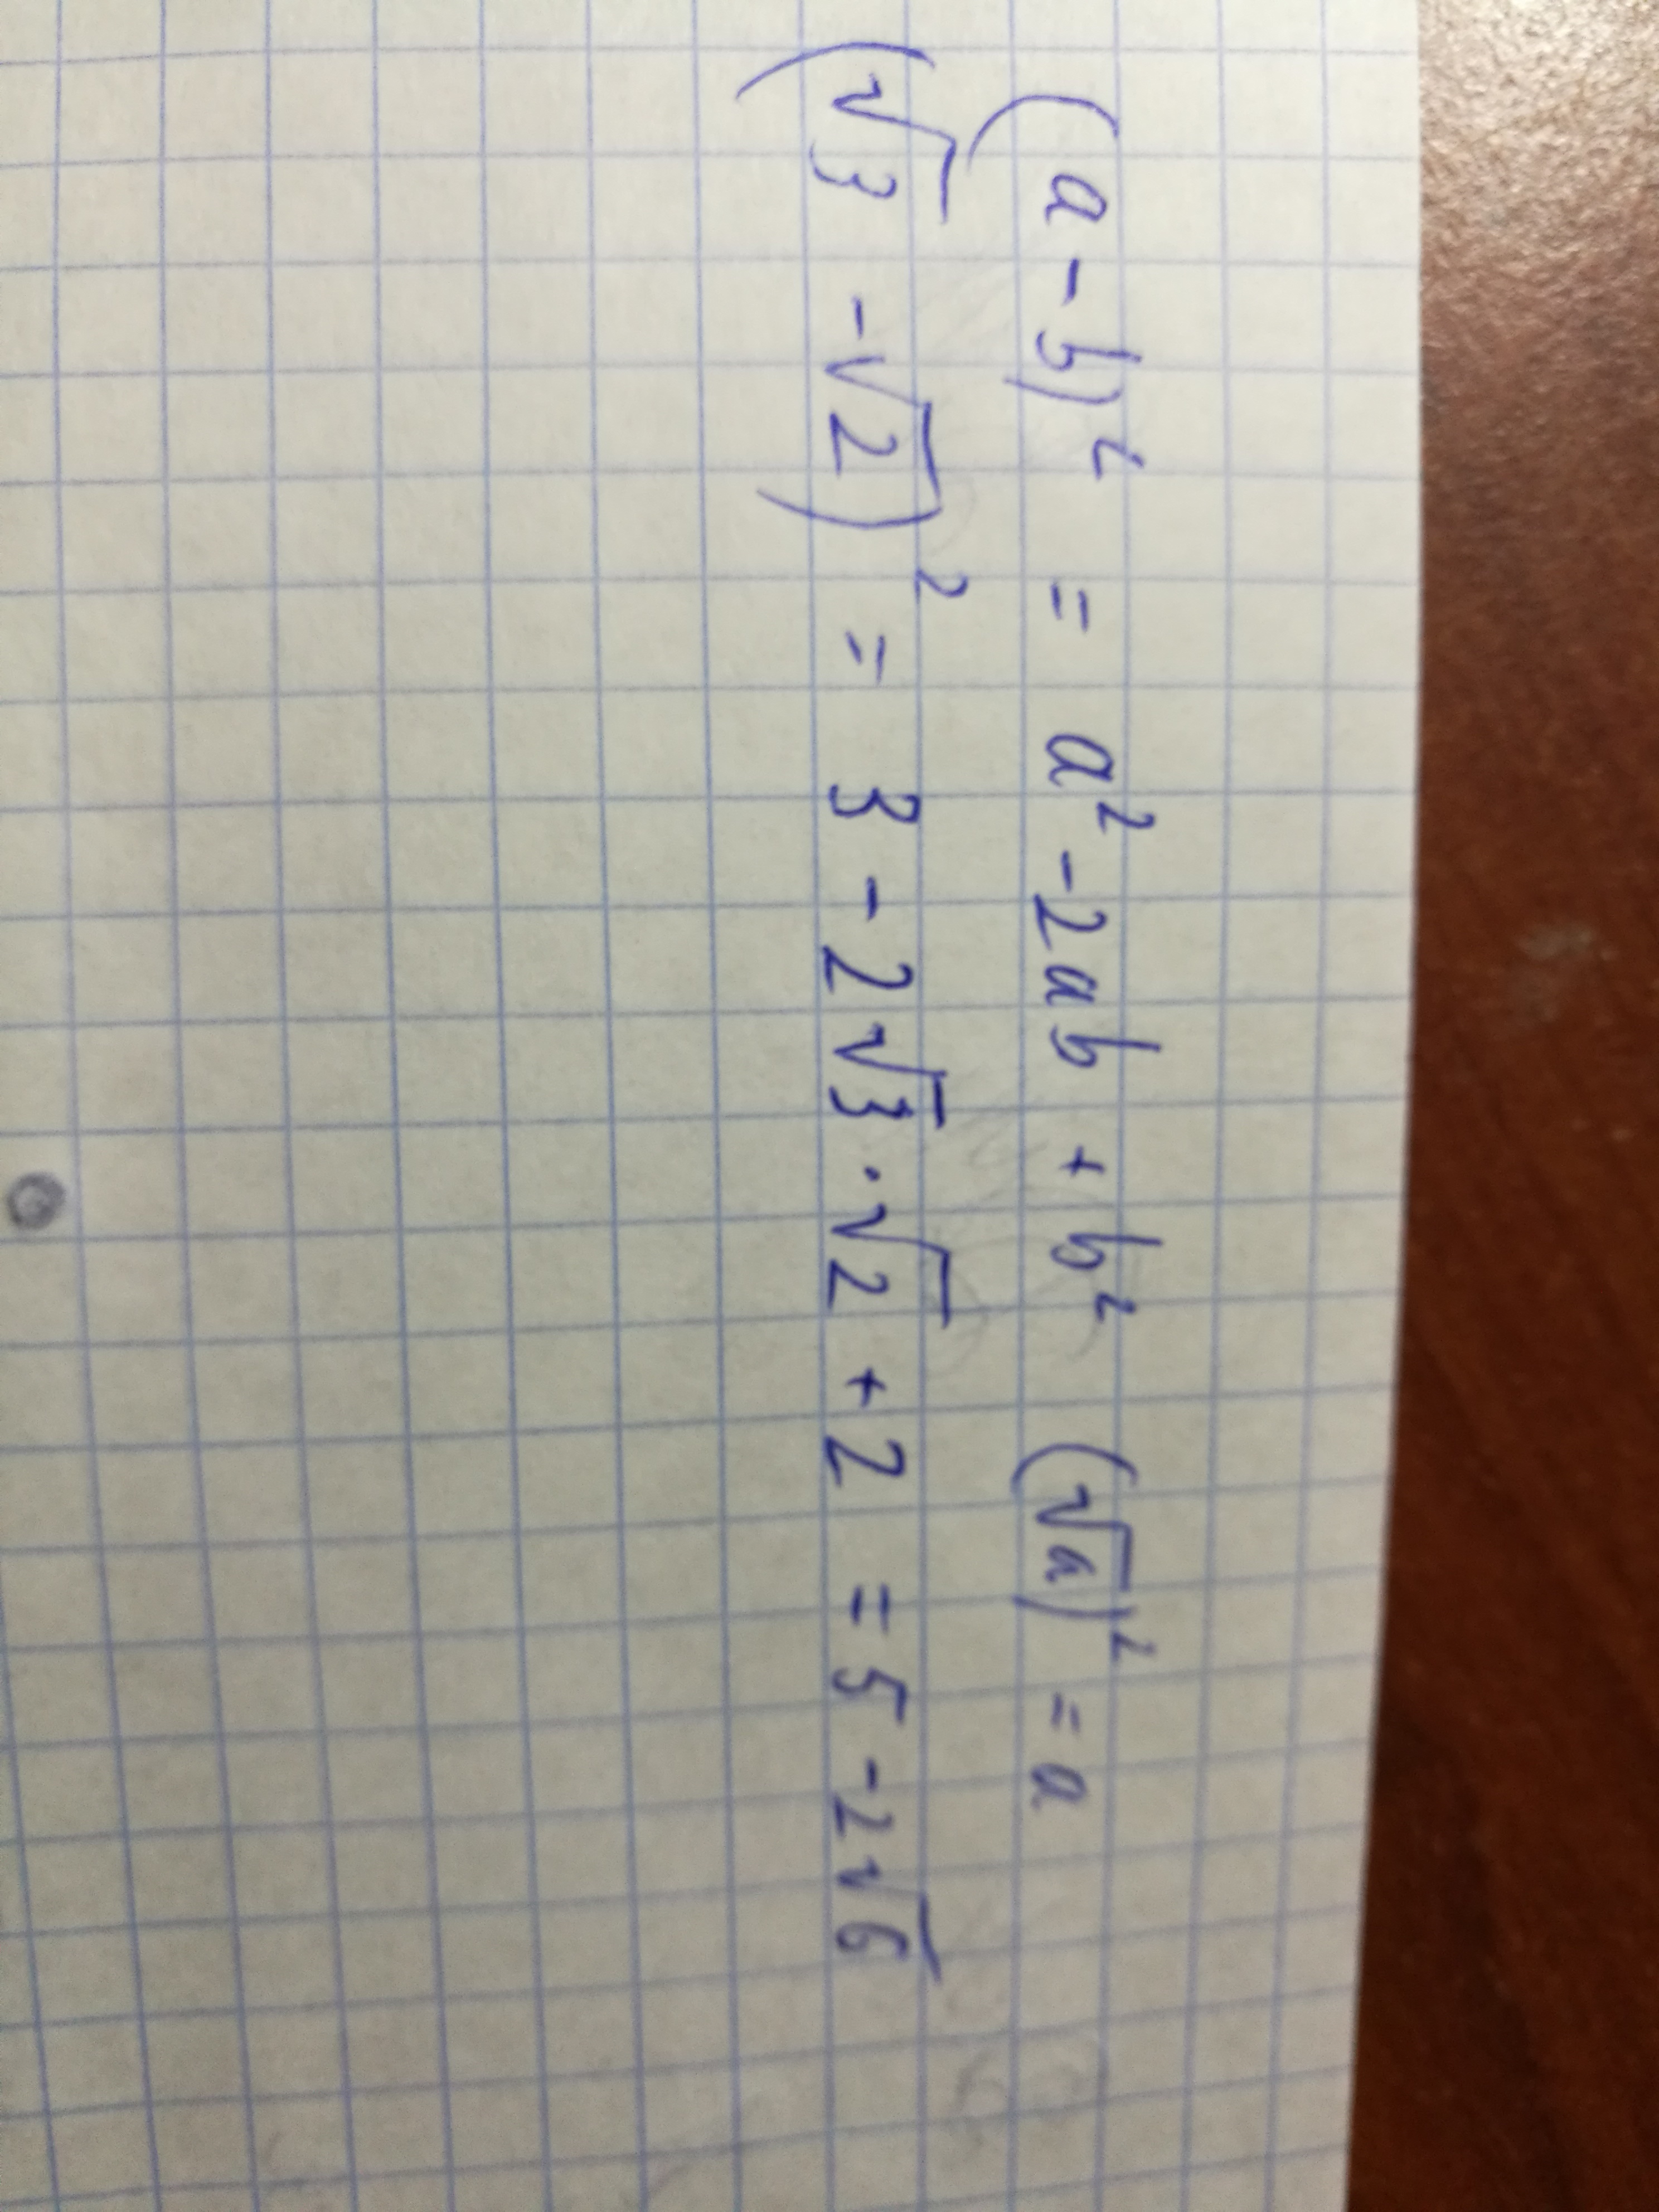 (a - b)² = a² - 2ab + b² (√a)² = a
(√3 - √2)² = 3 - 2√3 · √2 + 2 = 5 - 2√6